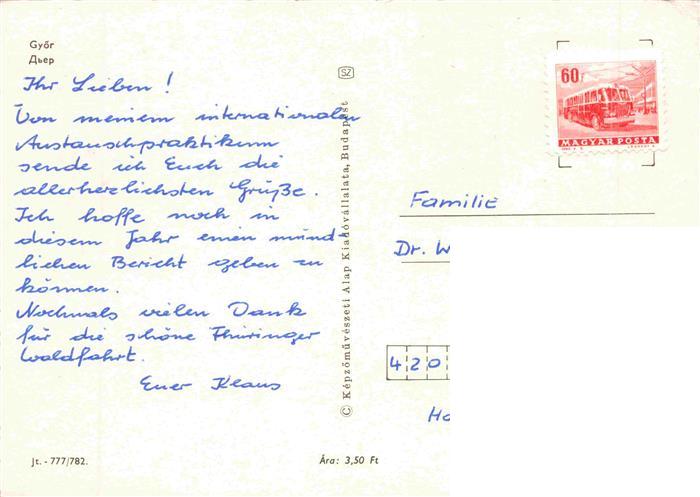 Győr
Дьер
Ihr Lieben !
Von meinem internationalen
Austauschpraktikum
sende ich Euch die
allerherzlichsten Grüße.
Ich hoffe noch in
diesem Jahr einen münd-
lichen Bericht geben zu
können.
Nochmals vielen Dank
für die schöne Thüringer
Waldfahrt.
Euer Klaus
Jt. - 777/782.
Ára: 3,50 Ft
© Képzőművészeti Alap Kiadóvállalata, Budapest
SZ
60f
MAGYAR POSTA
Familie
Dr. W
420
Ha